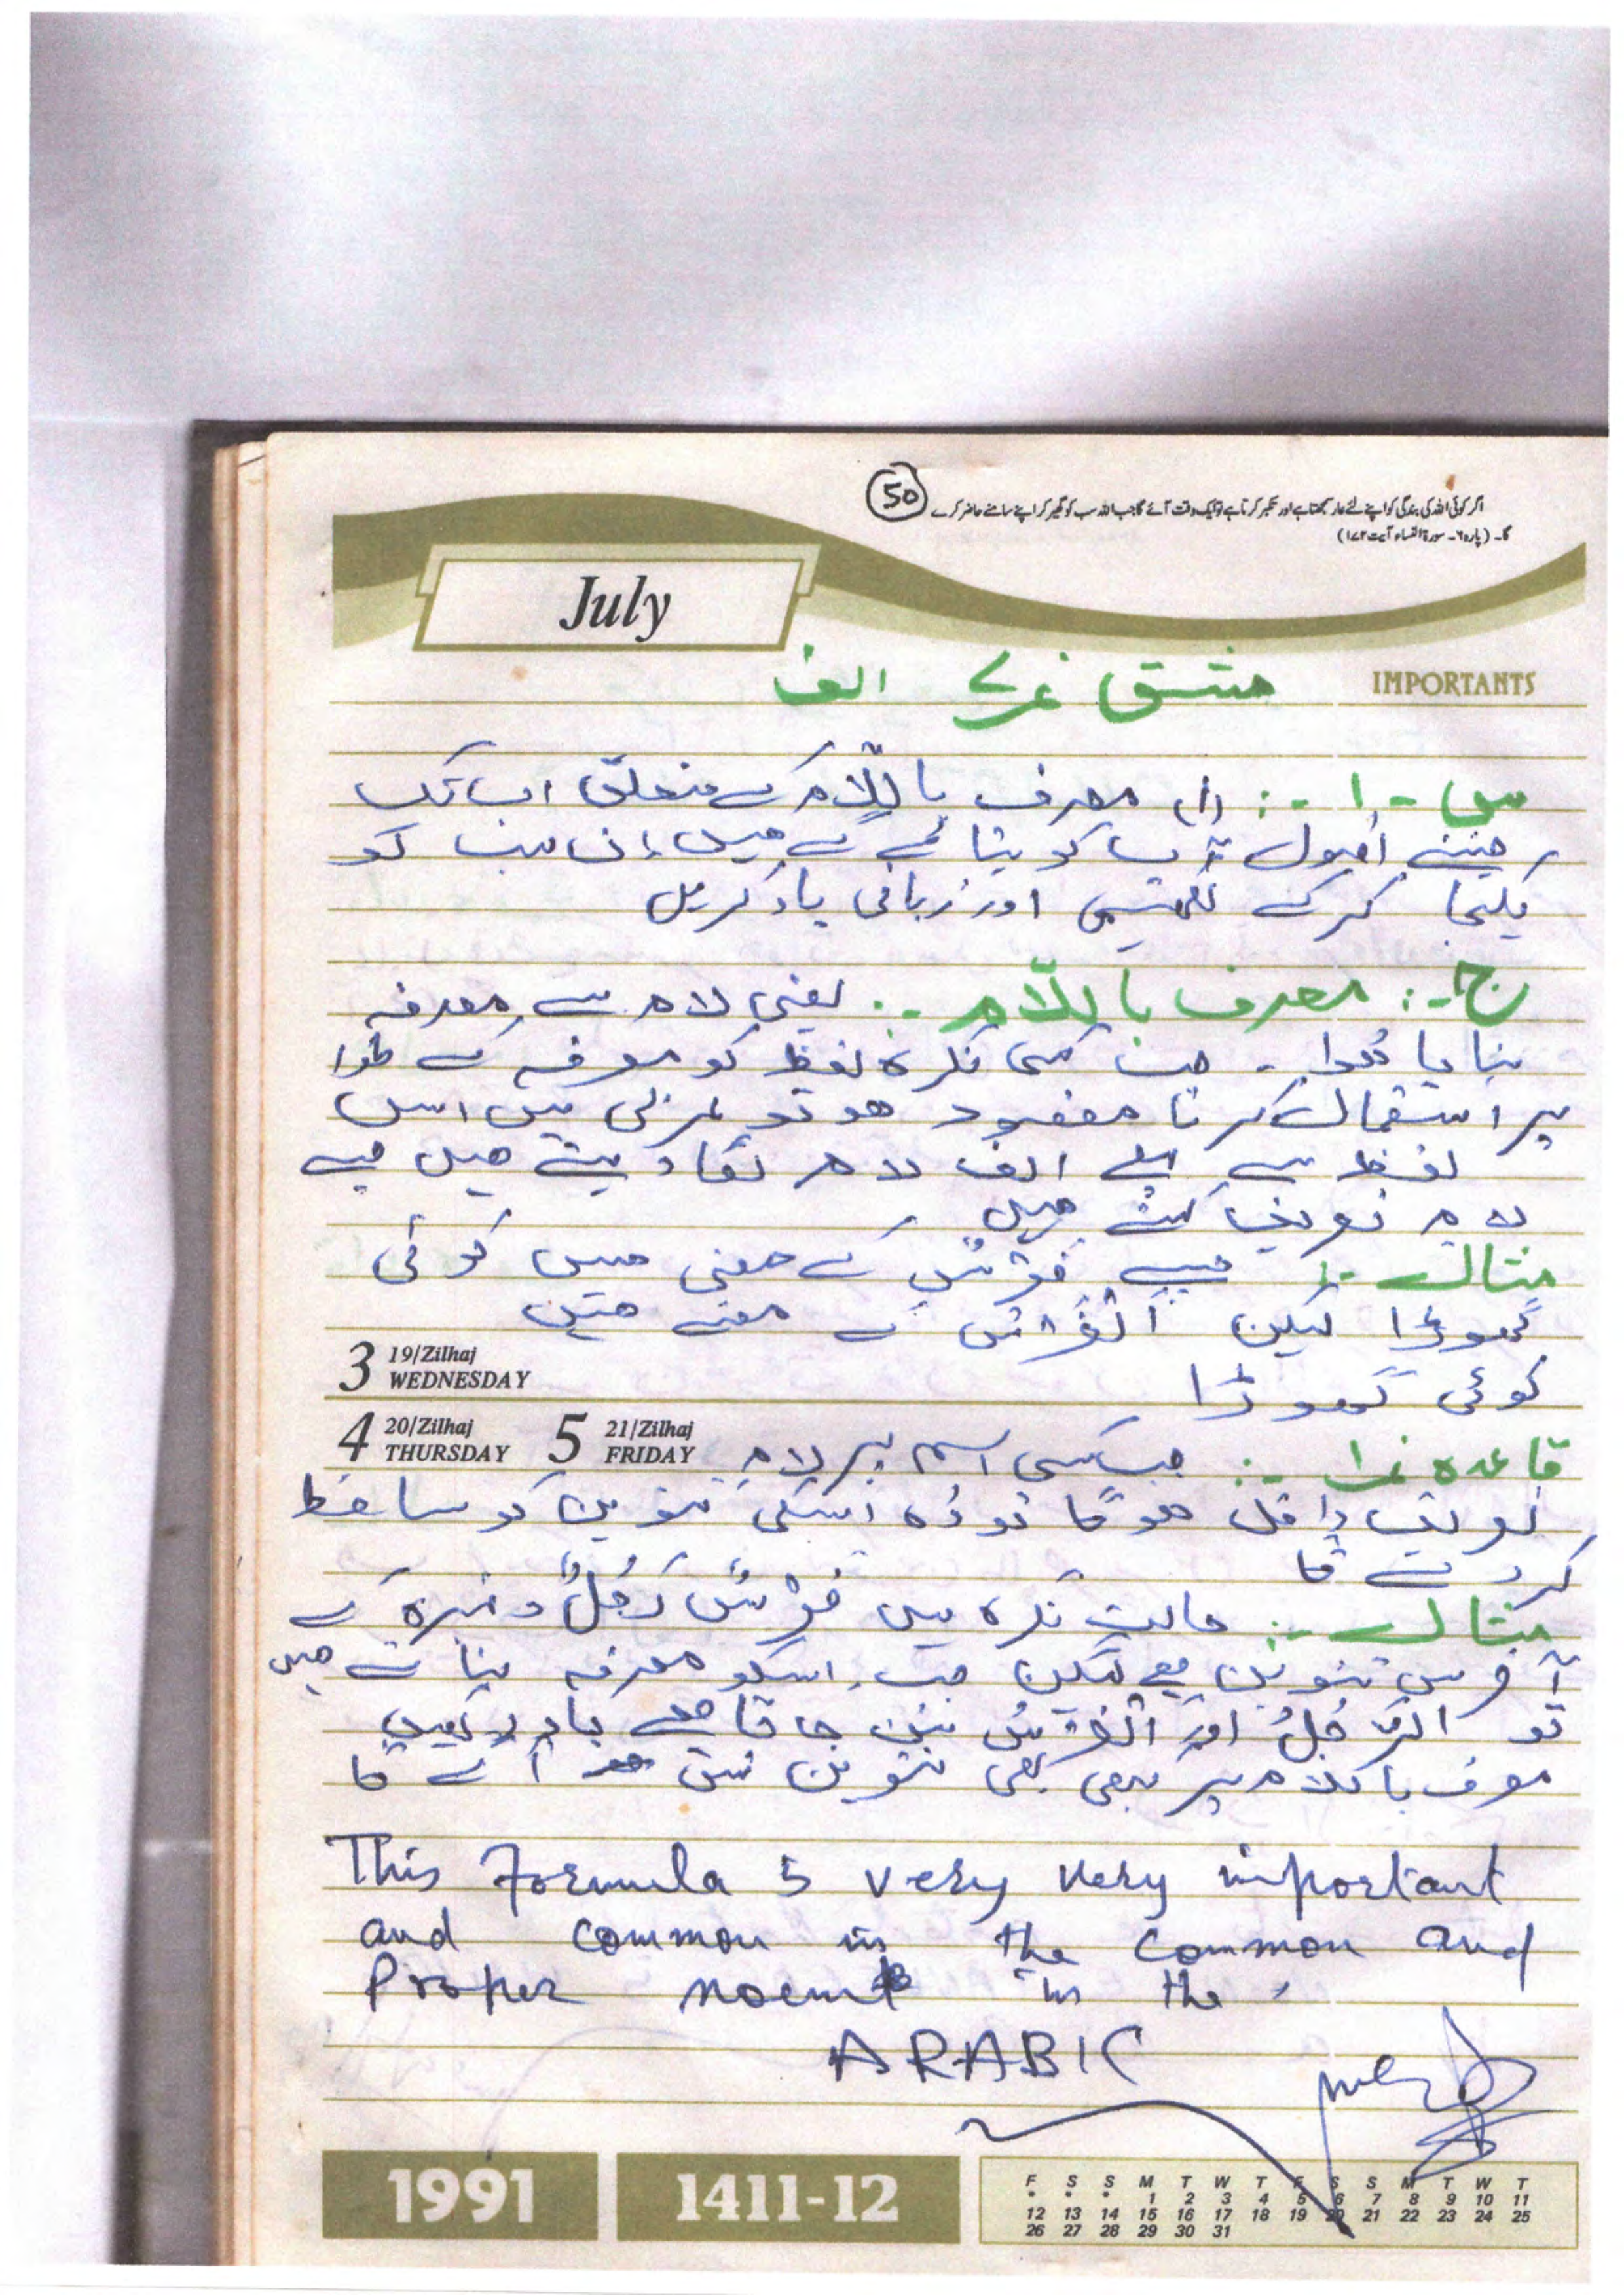 50
اگر کوئی اللہ کی بندگی کو اپنے لئے عار سمجھتا ہے اور تکبر کرتا ہے تو ایک وقت آئے گا جب اللہ سب کو گھیر کر اپنے سامنے حاضر کرے
گا۔ (پارہ ۶۔ سورۃ النساء آیت ۱۷۲)
July
IMPORTANTS
مشق نمبر ۷ الف
س - ۱ -: (۱) معرف باللّام کے متعلق اب تک
جتنے اصول آپ کو بتائے گئے ہیں ان سب کو
یکجا کرکے لکھیں اور زبانی یاد کریں
ج -: معرف باللّام -: یعنی لام سے معرفہ
بنایا ہوا - جب کسی نکرہ لفظ کو معرفہ کے طور
پر استعمال کرنا مقصود ہو تو عربی میں اس
لفظ سے پہلے الف لام لگا دیتے ہیں جسے
لام تعریف کہتے ہیں
مثال -: جیسے فَرَسٌ کے معنی ہیں کوئی
گھوڑا لیکن اَلْفَرَسُ کے معنے ہیں
کوئی گھوڑا
3 19/Zilhaj WEDNESDAY
4 20/Zilhaj THURSDAY 5 21/Zilhaj FRIDAY
قاعدہ نمبر ۱ -: جب کسی اسم پر لام
تعریف داخل ہوگا تو وہ اسکی تنوین کو ساقط
کر دے گا
مثال -: حالت نکرہ میں فَرَسٌ رَجُلٌ وغیرہ کے
آخر میں تنوین ہے لیکن جب اسکو معرفہ بناتے ہیں
تو الرَّجُلُ اور اَلْفَرَسُ بن جاتا ہے یاد رکھیں
معرف باللام پر کبھی بھی تنوین نہیں آئے گا
This Formula is very very important
and common in the common and
Proper noun in the
ARABIC
1991
1411-12
F S S M T W T F S S M T W T
* * * 1 2 3 4 5 6 7 8 9 10 11
12 13 14 15 16 17 18 19 20 21 22 23 24 25
26 27 28 29 30 31